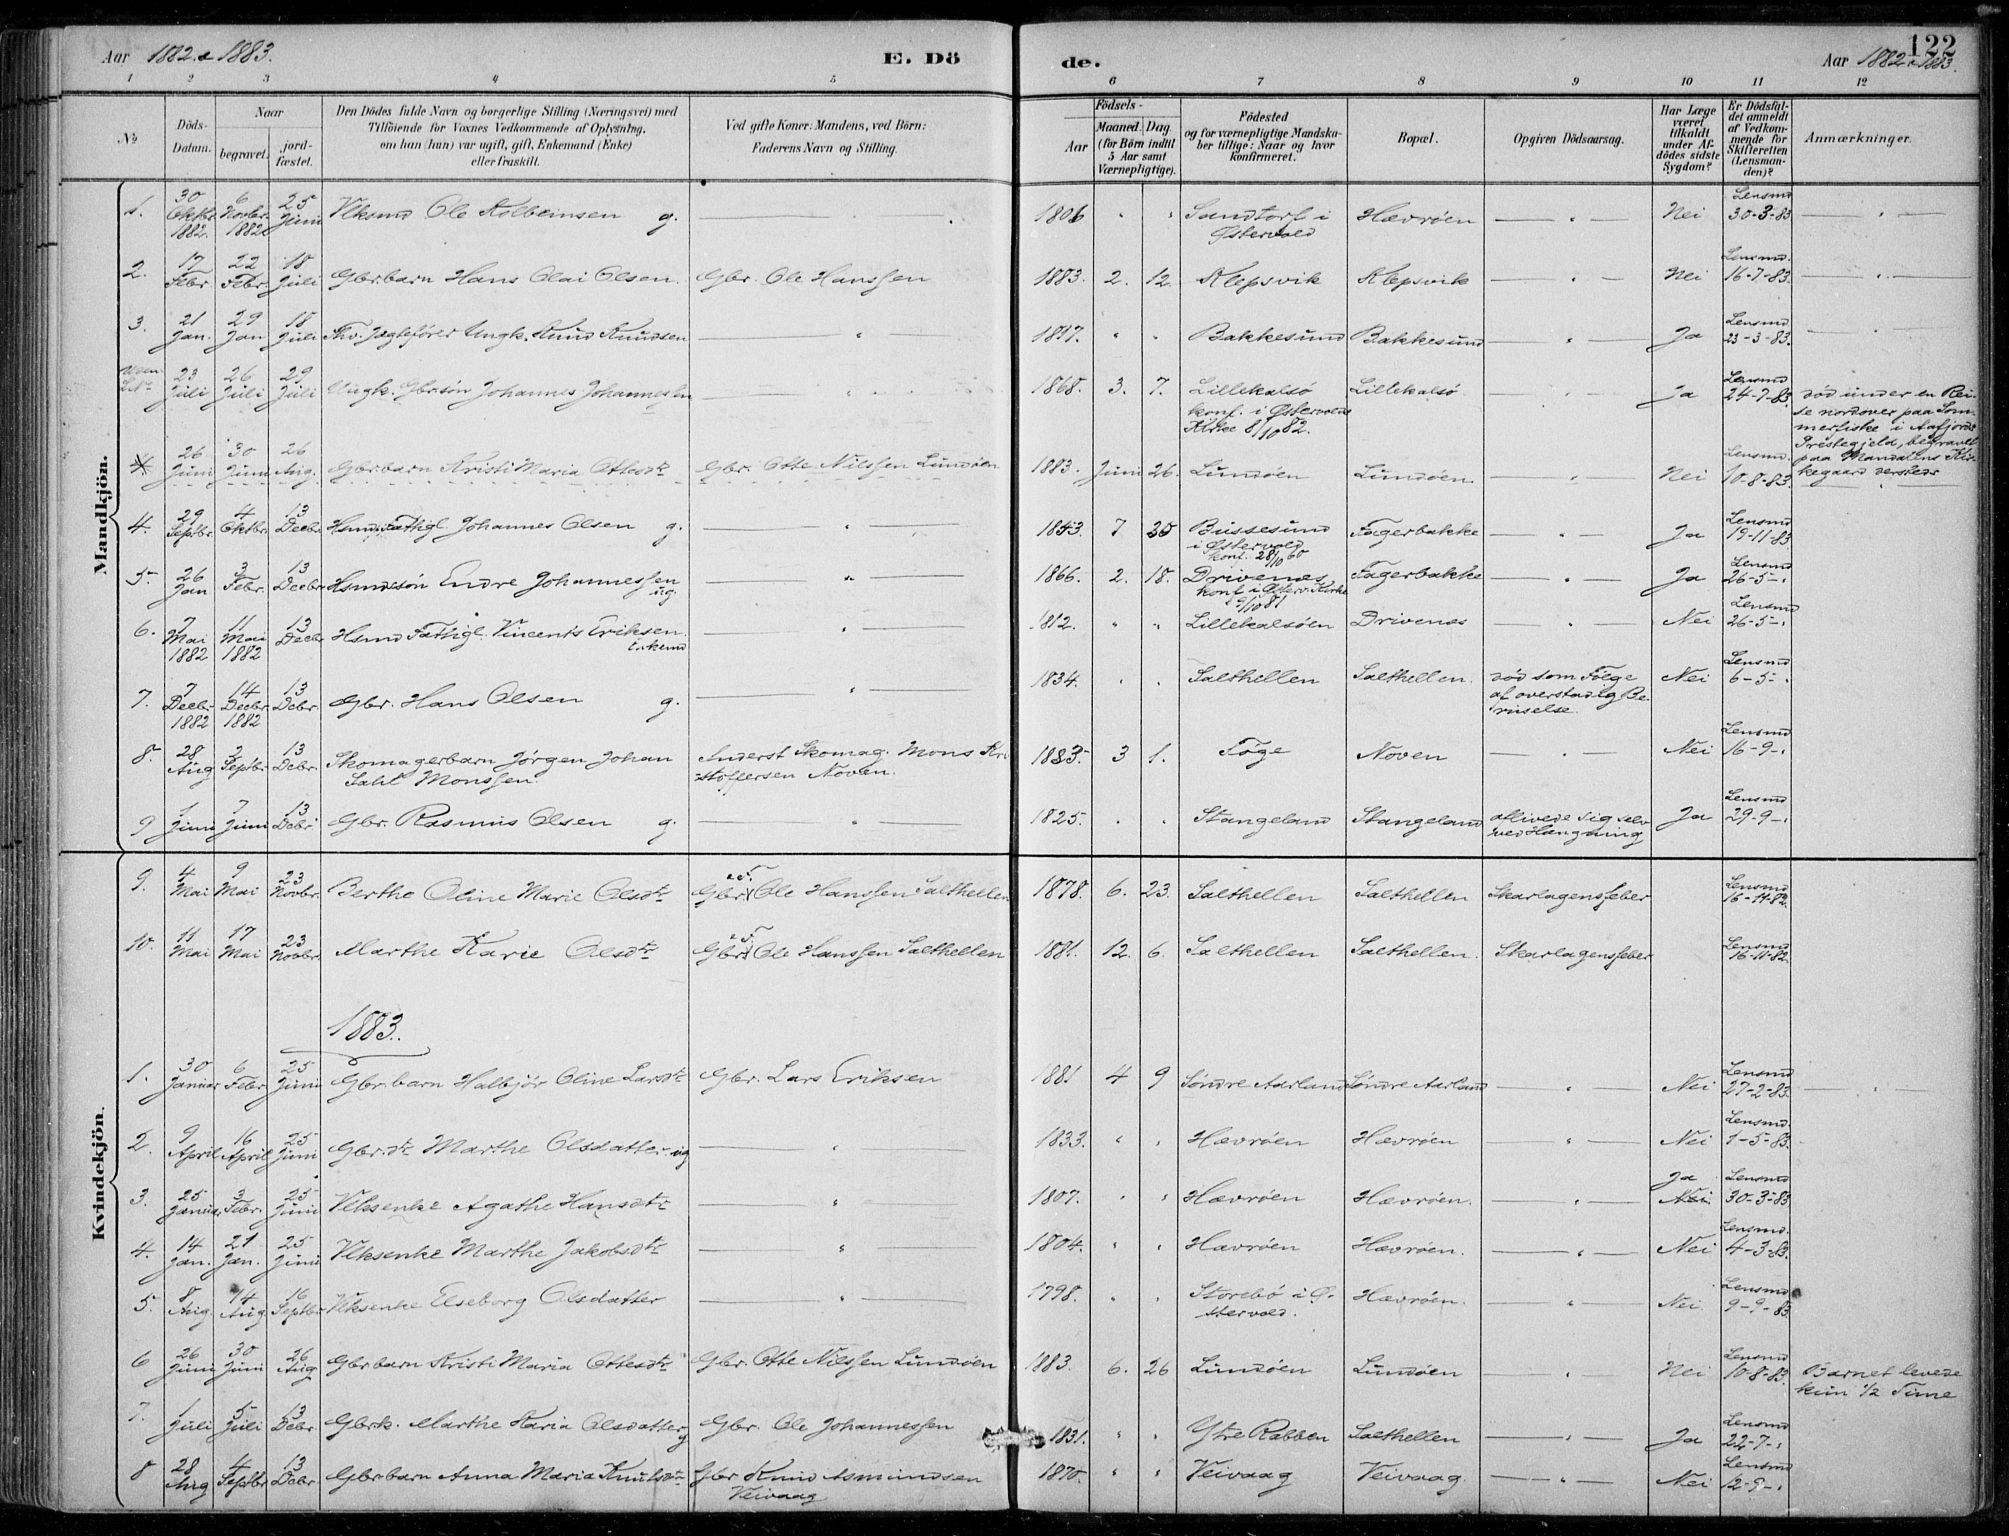 Aar 1882 & 1883.
E. Dö
de.
Aar 1882 & 1883.
122
1 2 3 4 5 6 7 8 9 10 11 12
No
Döds-Datum.
Naar
begravet.
jord-fæstet.
Den Dödes fulde Navn og borgerlige Stilling (Næringsvei) med
Tilföiende for Voxnes Vedkommende af Oplysning,
om han (hun) var ugift, gift, Enkemand (Enke)
eller fraskilt.
Ved gifte Koner: Mandens, ved Börn:
Faderens Navn og Stilling.
Födsels-
Aar
Maaned. Dag.
(for Börn indtil
5 Aar samt
Værnepligtige).
Födested
og for værnepligtige Mandska-
ber tillige: Naar og hvor
konfirmeret.
Bopæl.
Opgiven Dödsaarsag.
Har Læge
været
tilkaldt
under Af-
dödes sidste
Sygdom?
Er Dödsfal-
det anmeldt
af Vedkom-
mende for
Skifteretten
(Lensman-
den)?
Anmærkninger.
Mandkjön.
1. 30 Oktbr. 1882. 6 Novbr. 1882 25 Juni Vlksmd Ole Kolbeinsen g. 1806 " " Sandtorf i Østervold Hævröen " Nei Lensmd 30-3-83
2. 17 Febr. 22 Febr. 18 Juli Gbr.barn Hans Olai Olsen. Gbr. Ole Hanssen 1883. 2. 12. Klepsvik Klepsvik " Nei Lensmd. 16-7-83
3. 21 Jan. 29 Jan 18 Juli Jagtefører Ungk. Knud Knudsen " 1817. " " Bakkesund Bakkesund " Ja Lensmd 23-3-83.
23 Juli 26 Juli 29 Juli Ungk. Gbr.søn Johannes Johannessen 1868. 3. 7. Lillekalsö konf. i Østervolds Kirke 8/10 82. Lillekalsö Ja Lensmd 24-7-83. död under en Rei-
se nordover paa Som-
merfiske i Aafjords
Prestegjeld, begravet
paa Mandalens Kir-
kegaard dersteds
4 26 Juni 30 Juni 26 Aug. Gbr.barn Kristi Maria Ottesdtr Gbr. Otte Nilssen Lundöen 1883. Juni 26. Lundöen Lundöen " Nei Lensmd. 10-8-83.
4. 29 Septbr. 4 Oktbr. 13 Decbr. Hsmd. Fattigl. Johannes Olsen g. " 1843 7 25 Bussesund i Østervold konf. 28/10 60 Fagerbakke " Ja Lensmd 19-11-83
5. 26 Jan 3 Febr. 13 Decbr. Hsmdssön Endre Johannessen ug. " 1866. 2. 18. Drivenes konf. i Østerv. Kirke 9/10 81 Fagerbakke " Ja Lensmd 26-5-"
6. 7 Mai 1882 11 Mai 1882 13 Decbr Hsmd Fattigl. Vincents Eriksen. Enkemd " 1812. " " Lillekalsöen Drivenes " Nei Lensmd 26-5-"
7. 7 Decbr. 1882 14 Decbr. 1882 13 Debr. Gbr. Hans Olsen g. " 1834. " " Salthellen Salthellen. död som Fölge
af overstadig Be-
ruselse. Nei Lensmd 6-5-"
8. 28 Aug 2 Septbr. 13 Debr. Skomagerbarn Jørgen Johan
Sahl Monssen. Inderst Skomag. Mons Kri-
stoffersen Noven. 1883. 3 1. Töge Noven " Nei Lensmd 16-9-"
9 1 Juni 7 Juni 13 Debr Gbr. Rasmus Olsen g. " 1825. " " Stangeland Stangeland aflivede sig selv
ved Hængning Ja Lensmd 29-9-"
Kvindekjön.
9. 4 Mai 9 Mai 23 Novbr. Berthe Oline Marie Olsdtr Gbr. Ole Hanssen Salthellen 1878. 6. 23. Salthellen Salthellen Skarlagensfeber Lensmd 16-11-82.
10. 11 Mai 17 Mai 23 Novbr. Marthe Karie Olsdtr Gbr. Ole Hanssen Salthellen 1881. 12. 6. Salthellen Salthellen. Skarlagensfeber Lensmd 16-11-82
1883.
1. 30 Januar 6 Febr. 25 Juni Gbr.barn Halbjör Oline Larsdtr Gbr. Lars Eriksen 1881 4 9 Söndre Aarland Söndre Aarland " Nei Lensmd 27-2-83.
2. 9 April 16 April 25 Juni Gbr.dtr Marthe Olsdatter ug " 1833. " " Hævröen Hævröen " Nei Lensmd. 1-5-83.
3. 25 Januar 3 Febr. 25 Juni Vlksenke Agathe Hansdtr " 1807. " " Hævröen Hævröen. " Ja Nei Lensmd 30-3-83
4. 14 Jan. 21 Jan. 25 Juni Vlksenke Marthe Jakobsdtr " 1804. " " Hævröen Hævröen. " Nei Lensmd. 4-3-83.
5. 8 Aug. 14 Aug 16 Septbr. Vlksenke Elseborg Olsdatter " 1798. " " Storebö i Ö-
stervold. Hævröen. " Nei. Lensmd 9-9-83
6 26 Juni 30 Juni 26 Aug Gbr.barn Kristi Maria Ottesdtr Gbr. Otte Nilssen Lundöen 1883. 6. 26 Lundöen Lundöen " Nei Lensmd 10-8-83. Barnet levede
kun 1/2 Time
7. 1 Juli 5 Juli 13 Debr Gbrk. Marthe Karia Olsdatter g Gbr. Ole Johannessen 1831. " " Ytre Rabben Salthellen " Ja Lensmd 22-7-"
8 28 Aug 4 Septbr 13 Debr Gbr.barn Anna Maria Knutsdtr Gbr Knud Asmundsen
Veivaag 1870. " " Veivaag Veivaag. " Nei Lensmd 12-9-"